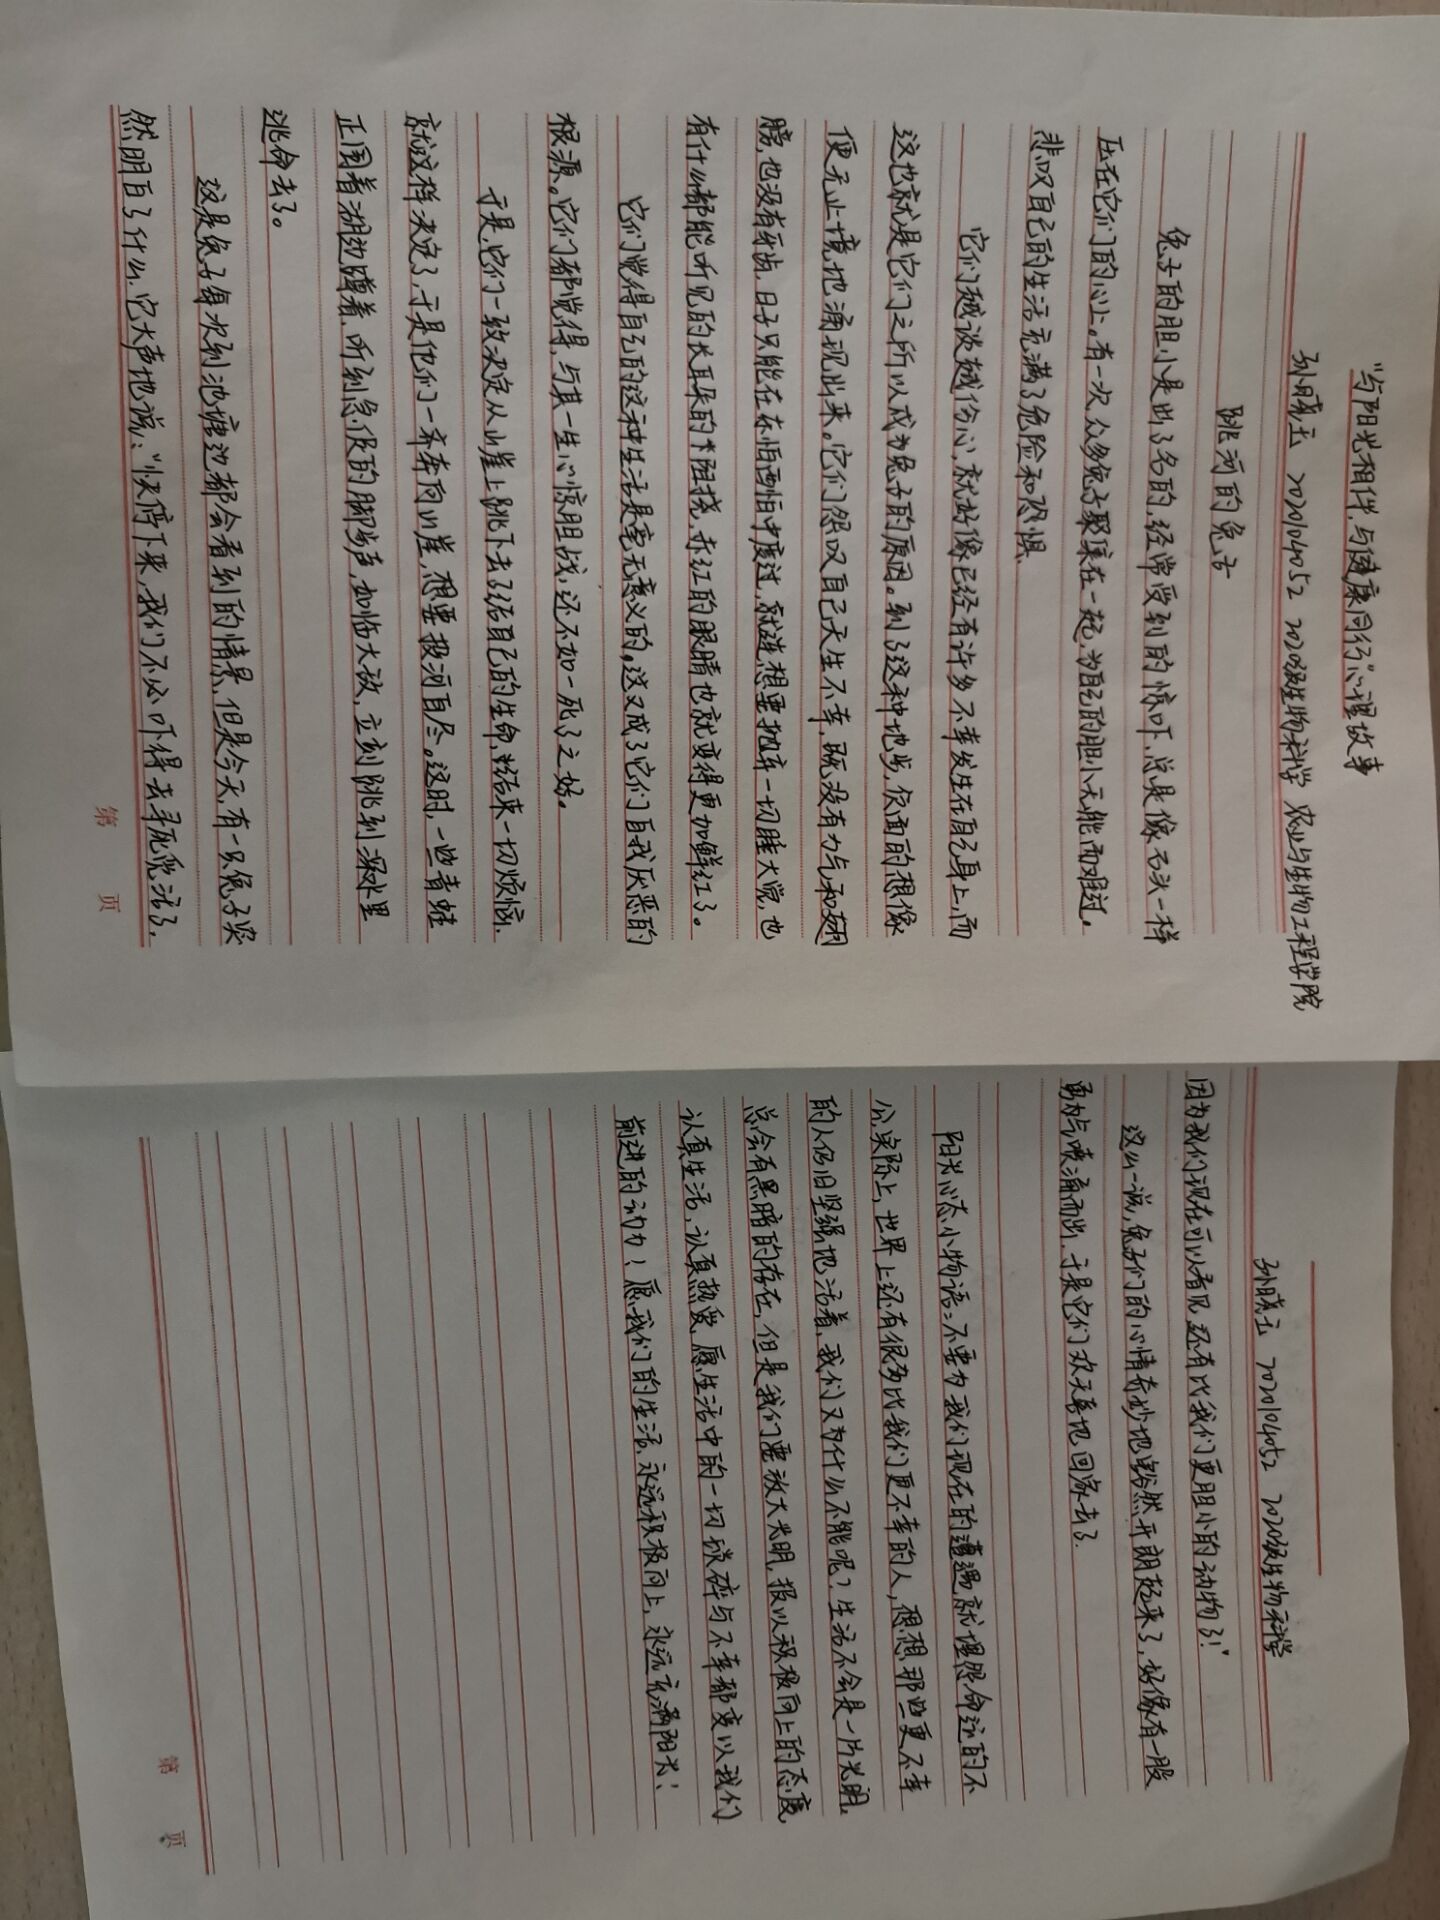 “与阳光相伴，与健康同行”心理故事
孙晓云 2020104052 2020级生物科学 农业与生物工程学院
跳河的兔子
兔子的胆小是出了名的，经常受到的惊吓，总是像石头一样
压在它们的心上。有一次，众多兔子聚集在一起，为自己的胆小无能而难过，
悲叹自己的生活充满了危险和恐惧.
它们越谈越伤心，就好像已经有许多不幸发生在自己身上，而
这也就是它们之所以成为兔子的原因。到了这种地步，负面的想像
便无止境地涌现出来。它们怨叹自己天生不幸，既没有力气和翅
膀，也没有牙齿，日子只能在东怕西怕中度过，就连想要抛弃一切睡大觉，也
有什么都能听见的长耳朵的阻挠，赤红的眼睛也就变得更加鲜红了。
它们觉得自己的这种生活是毫无意义的，这又成了它们自我厌恶的
根源。它们都觉得，与其一生心惊胆战，还不如一死了之好。
于是，它们一致决定从山崖上跳下去了结自己的生命，结束一切烦恼.
就这样决定了，于是他们一齐奔向山崖，想要投河自尽。这时，一些青蛙
正围着湖边蹲着，听到急促的脚步声，如临大敌，立刻跳到深水里
逃命去了。
这是兔子每次到池塘边都会看到的情景，但是今天，有一只兔子突
然明白了什么，它大声地说：“快停下来，我们不必吓得去寻死觅活了，
第 页
孙晓云 2020104052 2020级生物科学
因为我们现在可以看见，还有比我们更胆小的动物了！”
这么一说，兔子们的心情奇妙地豁然开朗起来了，好像有一股
勇气喷涌而出，于是它们欢天喜地回家去了.
阳光心态小物语：不要为我们现在的遭遇，就埋怨命运的不
公，实际上，世界上还有很多比我们更不幸的人，想想那些更不幸
的人仍旧坚强地活着，我们又为什么不能呢？生活不会是一片光明，
总会有黑暗的存在，但是我们要放大光明，报以积极向上的态度
认真生活，认真热爱，愿生活中的一切破碎与不幸都变以我们
前进的动力！愿我们的生活，永远积极向上，永远充满阳光！
第 页